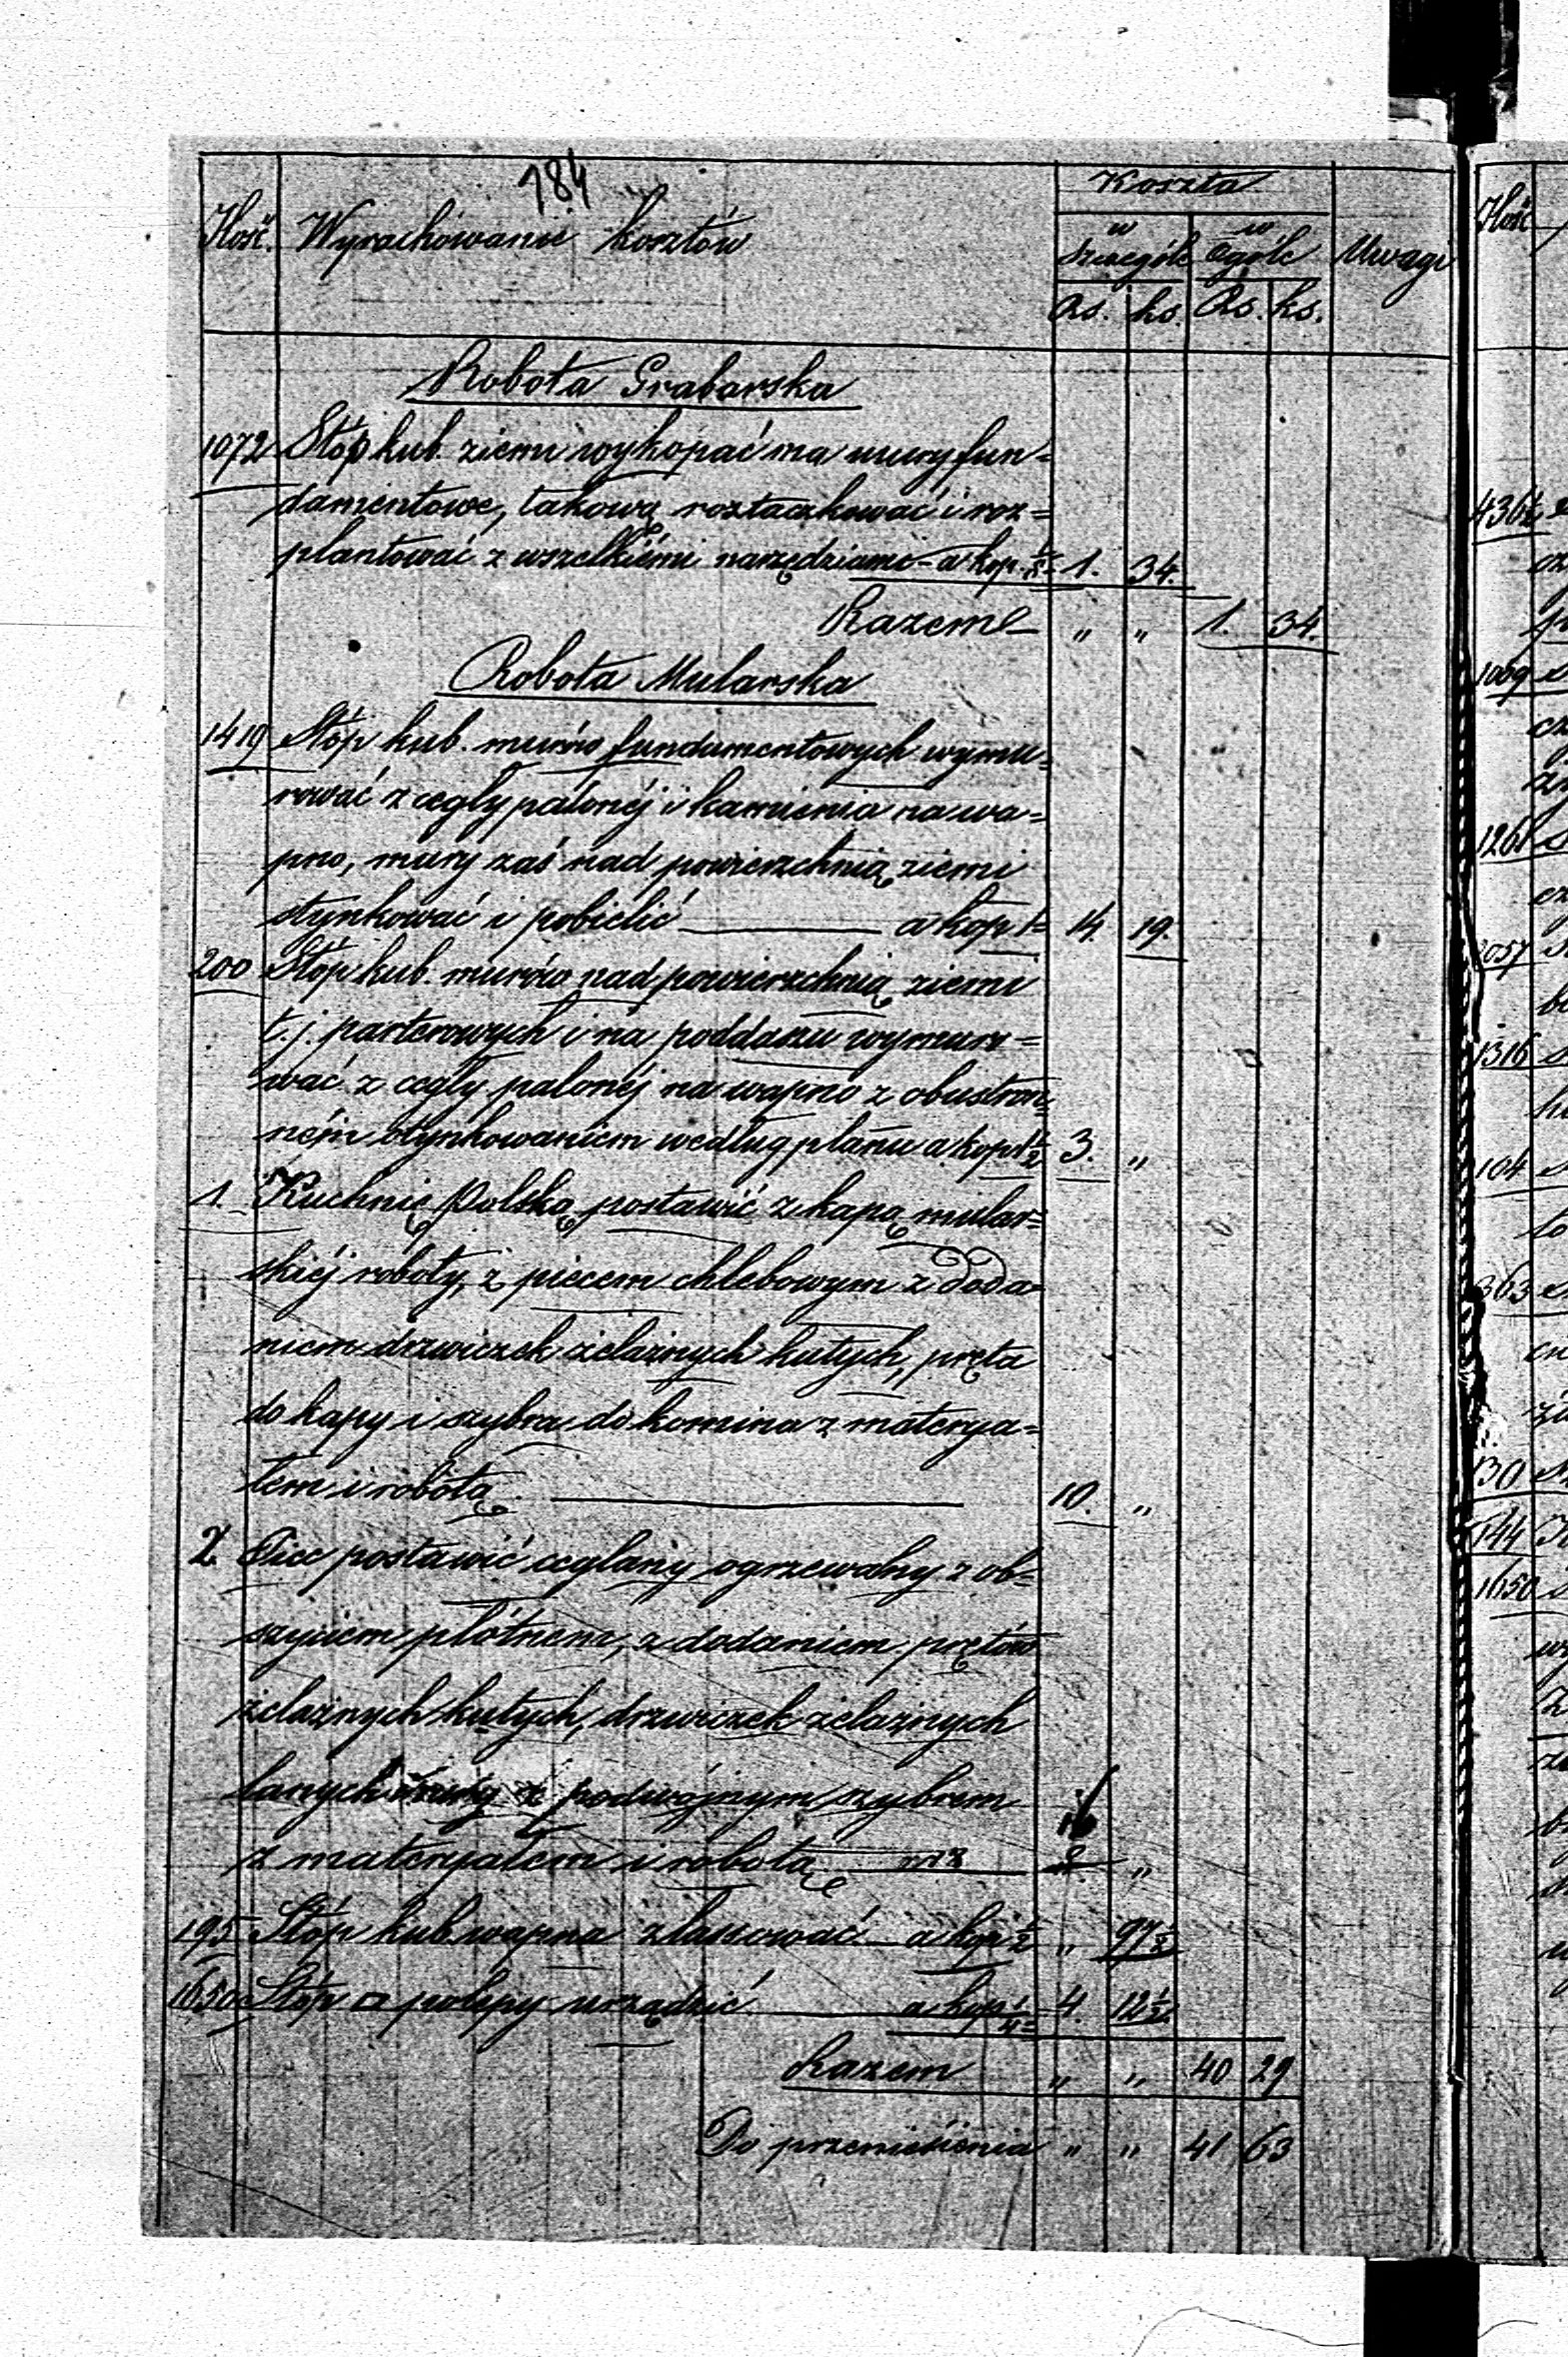 184
Koszta
Ilość. Wyrachowanie kosztów w szczególe w ogóle Uwagi
Rs. ks. Rs. ks.
Robota Grabarska
1072 Stóp kub. ziemi wykopać na mury fun=
damentowe, takową roztaczkować i roz=
plantować z wszelkiémi narzędziami - a kop. 1/8 1. 34.
Razem „ „ 1. 34.
Robota Mularska
1419 Stóp kub. murów fundamentowych wymu=
rować z cegły palonéj i kamienia na wa=
pno, mury zaś nad powierzchnią ziemi
otynkować i pobielić a kop 1 14. 19.
200 Stóp kub. murów nad powierzchnią ziemi
t.j. parterowych i na poddaszu wymuro=
wać z cegły palonéj na wapno z obustron=
néjm otynkowaniem według planu a kop 1 1/2 3. „
1. Kuchnię Polską postawić z kapą mular=
skiéj roboty, z piecem chlebowym z doda=
niem drzwiczek żelaznych kutych, pręta
do kapy i szybra do komina z materya=
łem i robotą 10. „
2 Piec postawić ceglany ogrzewalny z ob=
szyciem płótnem, z dodaniem prętów
żelaznych kutych, drzwiczek żelaznych
lanych z podwójnym szybrem
z materyałem i robotą „
195 Stóp kub wapna zlasować a kop 1/2 „ 97 1/2
1650 Stóp □ polepy urządzić a kop 1/4 4. 12 1/2
Razem „ „ 40 29
Do przeniesienia „ „ 41 63
Ilość
1009
1261
2057
1316
104
363
130
144
1650